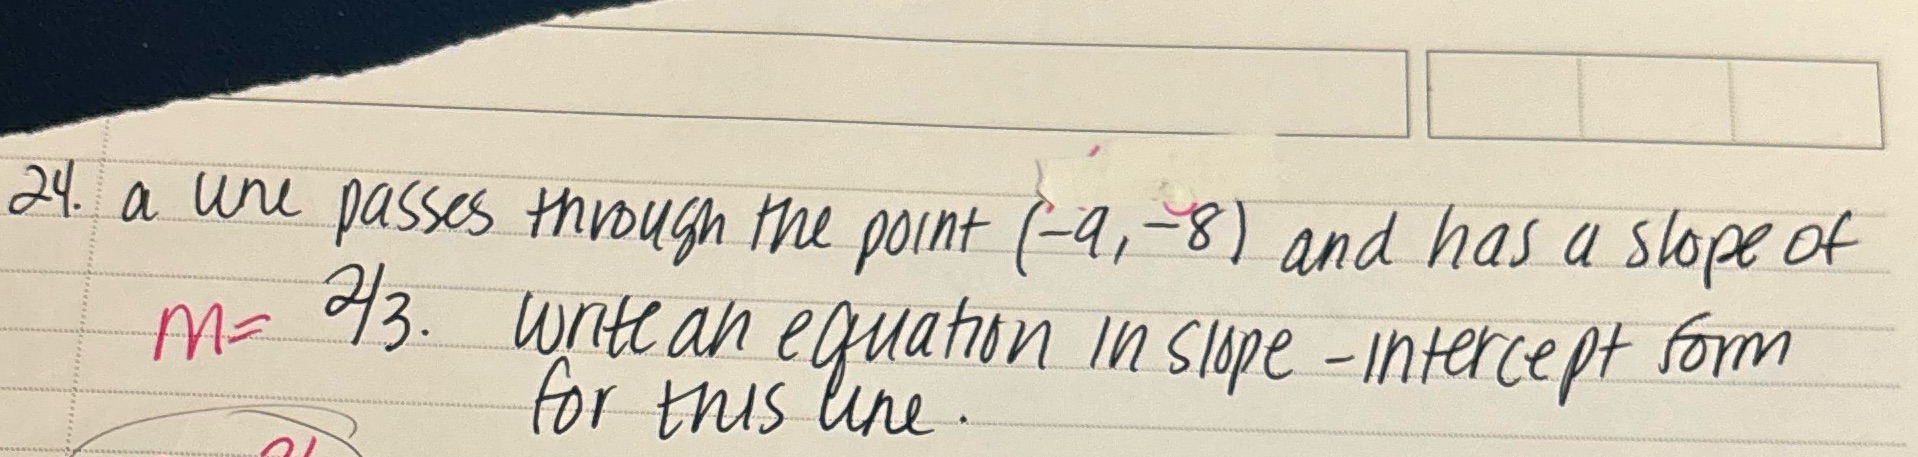 24. a line passes through the point (-9, -8) and has a slope of
m= 2/3. write an equation in slope-intercept form
for this line.